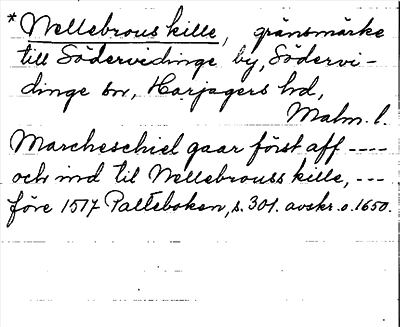 * Wellebrous kille, gränsmärke
till Södervidinge by, Södervi-
dinge sn, Harjagers hd,
Malm. l.
Marcheschiel gaar först aff ----
och ind til Wellebrouss kille, ---
före 1517 Palteboken, s. 301. avskr. o. 1650.